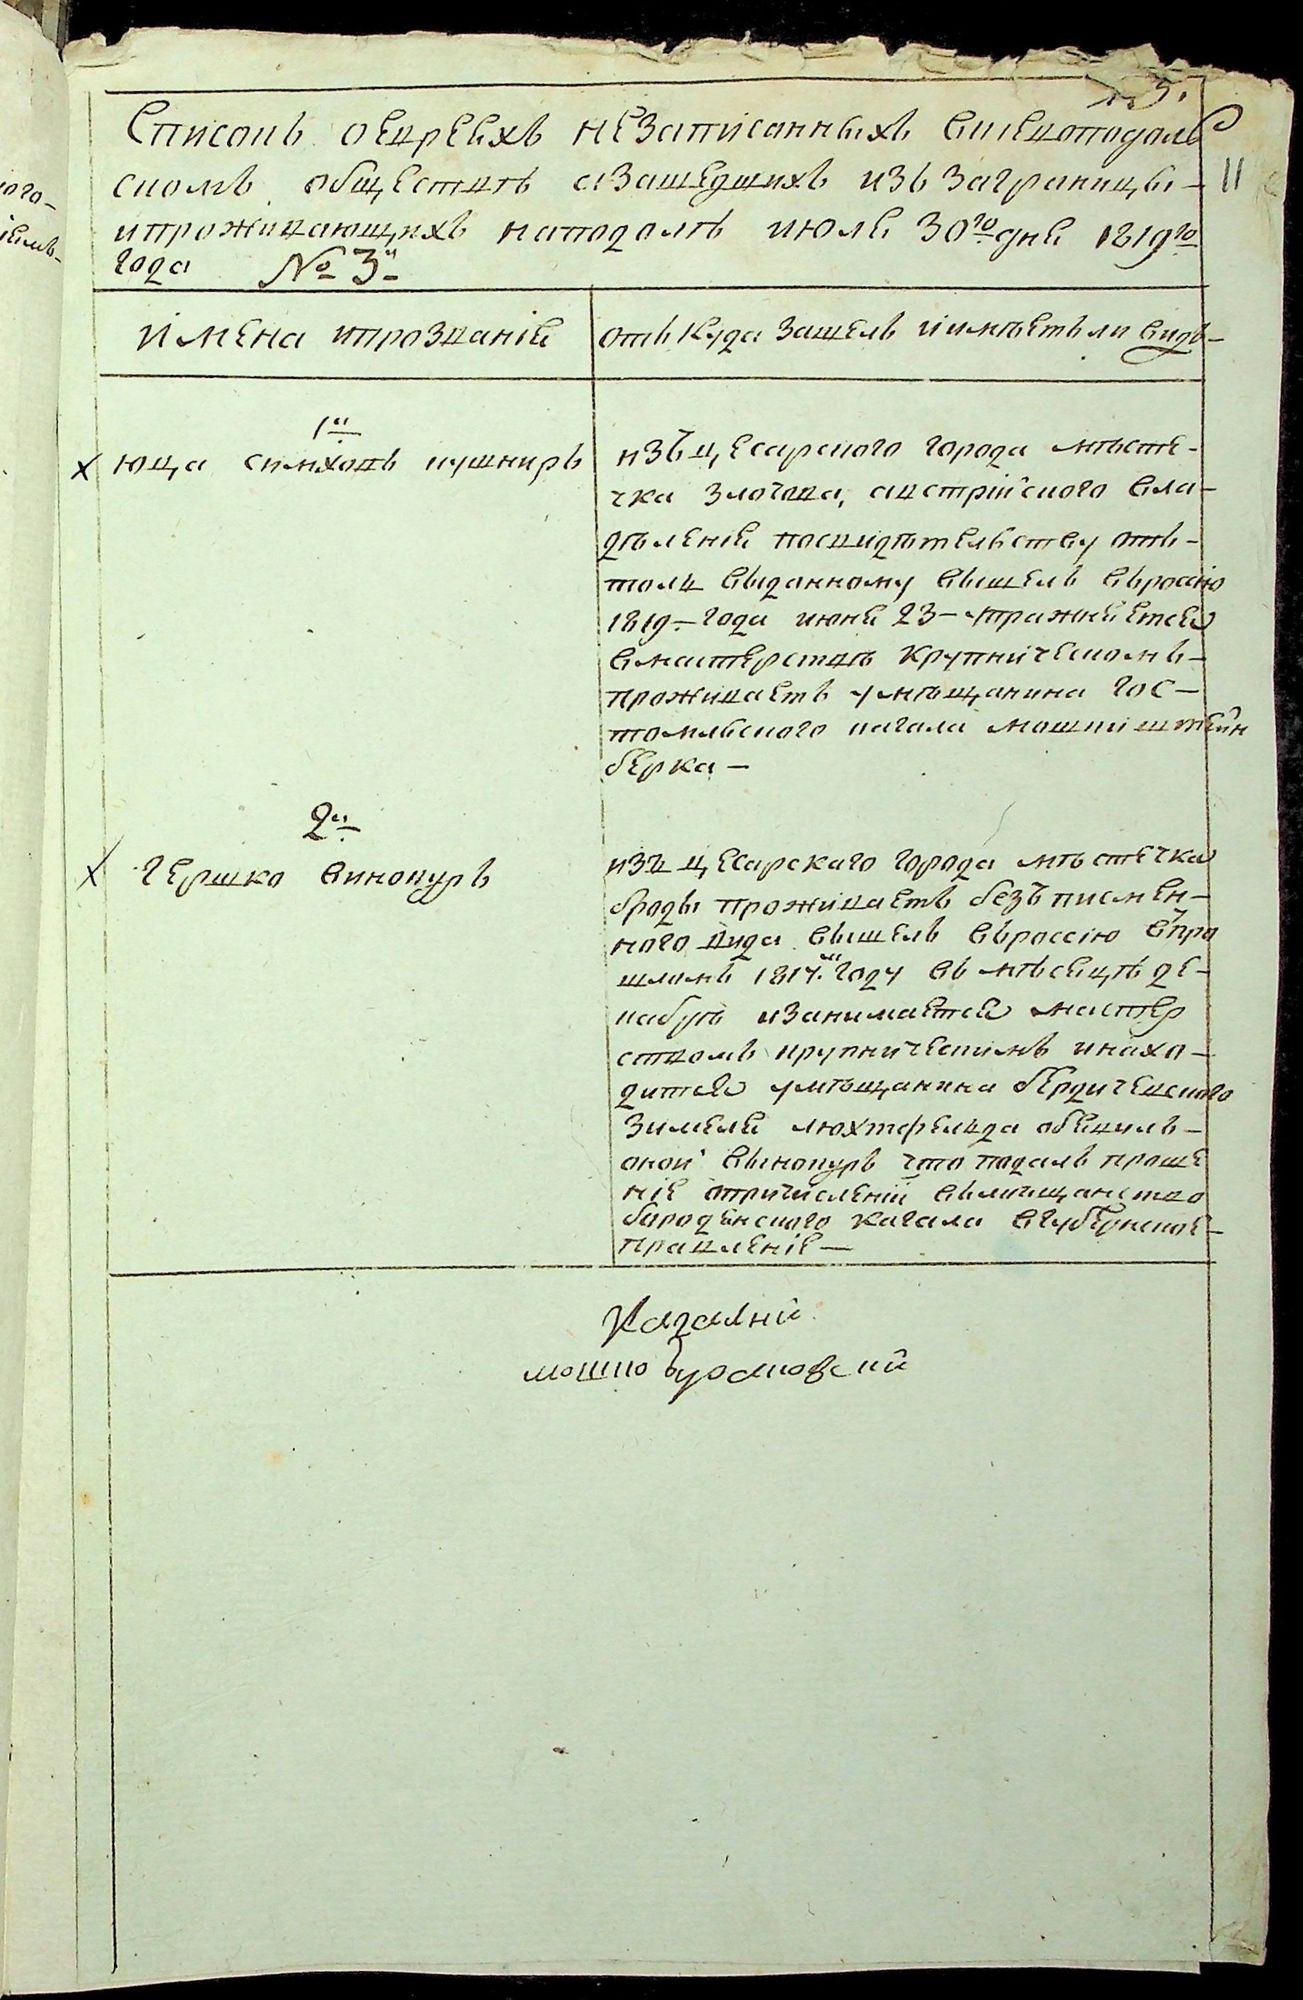 № 3.
Списокъ оевреехъ незаписанныхъ вкіевоподоль
скомъ обществѣ азашедшихъ изъ заграницы
ипроживающихъ наподолѣ июля 30го дня 1819го
года № 3й
11
имена ипрозваніе
отъ куда зашелъ иимѣетъ ли видъ
1й
юща симховъ кушниръ
изъ цесарского города мѣсте-
чка злочова, австрійского вла-
дѣленіе посвидѣтельству отъ-
толь выданному вышелъ вроссію
1819 года июня 23 упражняется
вмастерствѣ крупническомъ-
проживаетъ умѣщанина гос-
томльского кагала мошки штейн
берка -
2й
гершко винокуръ
изъ цесарскаго города мѣстечка
броды проживаетъ безъ писмен-
ного вида вышелъ вроссію впро
шломъ 1817м году въ мѣсецѣ де-
кабрѣ изанимается мастер
ствомъ крупническимъ инахо-
дится умѣщанина бердичевского
зимеля люхтфельда обявилъ-
оной винокуръ что подалъ проше
ніе опричисленій вмищанство
бородянского кагала вгубернское-
правленіе -
Кагалній
мошко